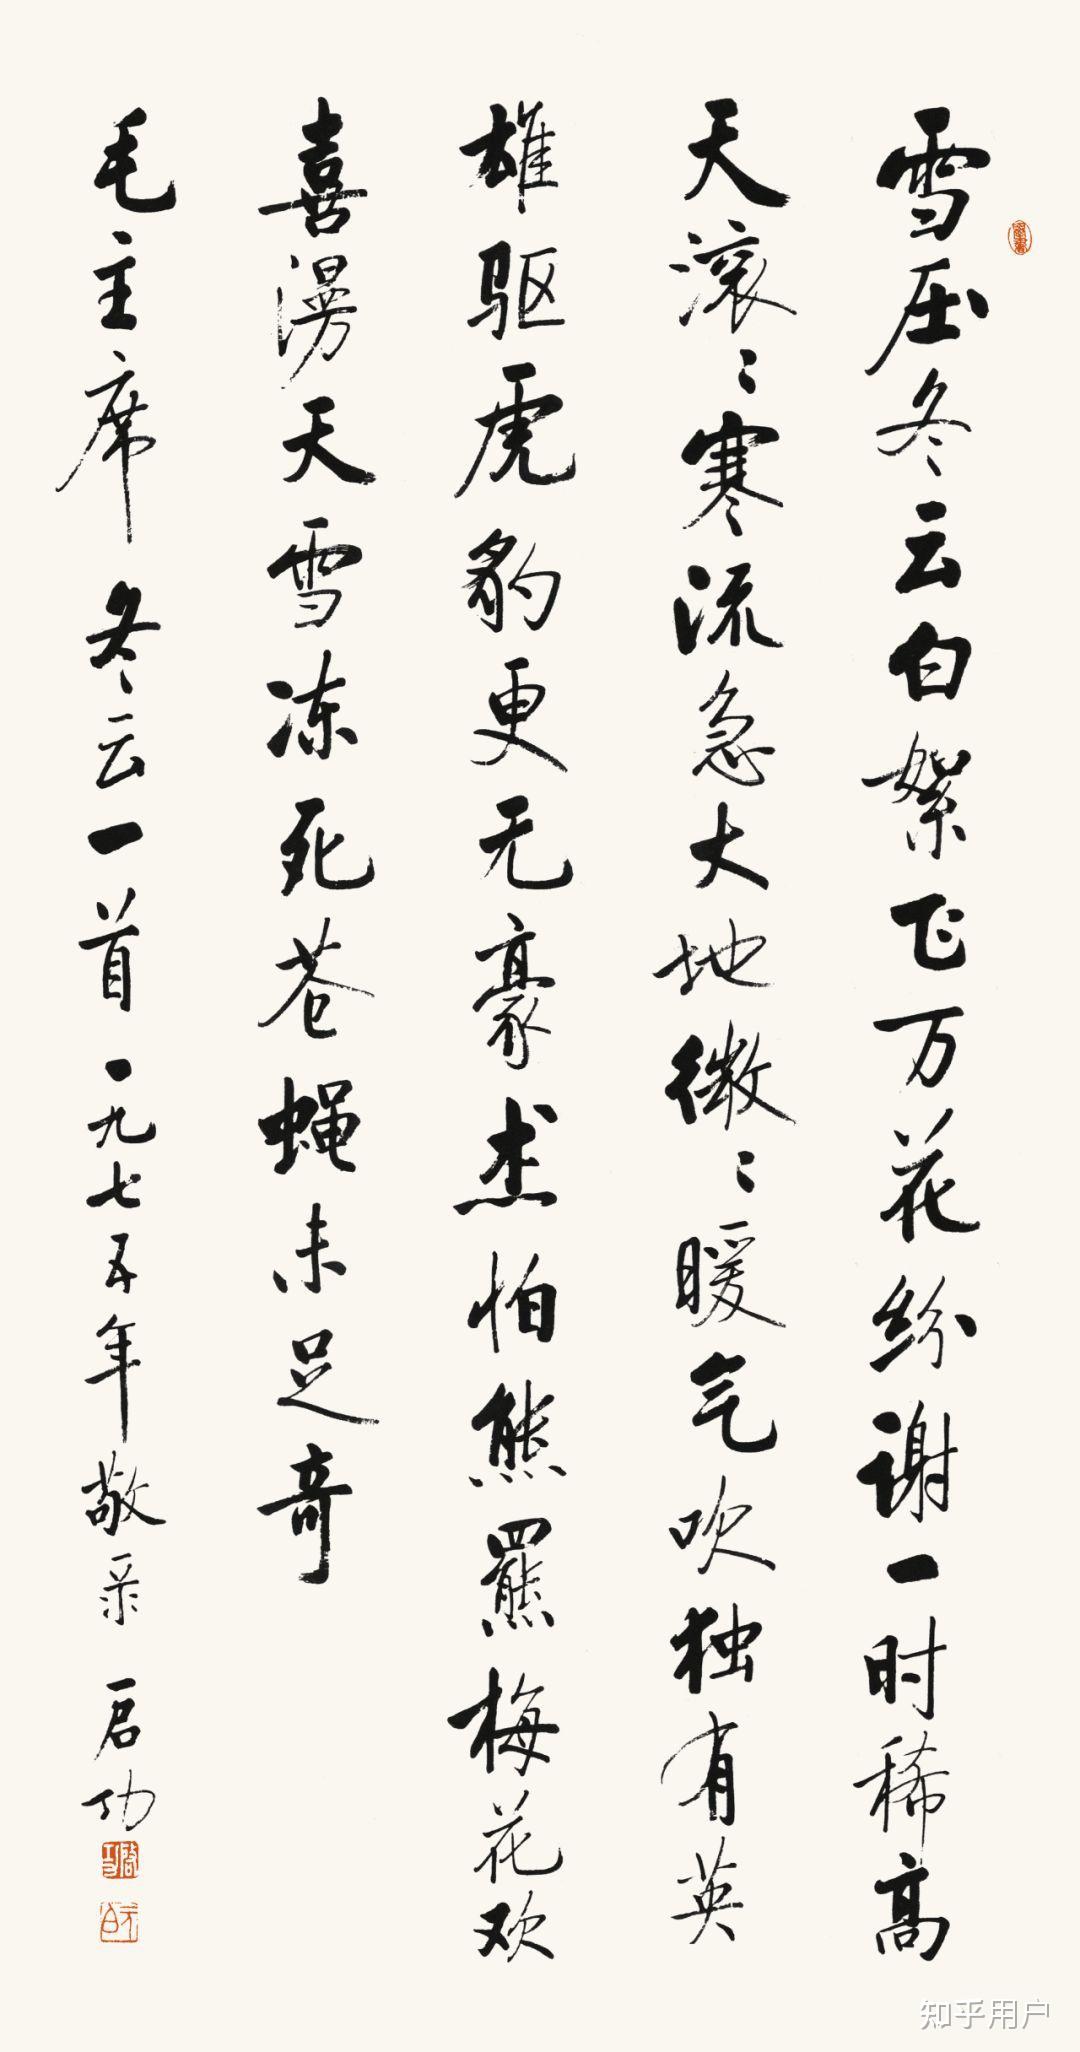 雪压冬云白絮飞万花纷谢一时稀高
天滚〻寒流急大地微〻暖气吹独有英
雄驱虎豹更无豪杰怕熊罴梅花欢
喜漫天雪冻死苍蝇未足奇
毛主席 冬云一首 一九七五年敬录 启功
知乎用户